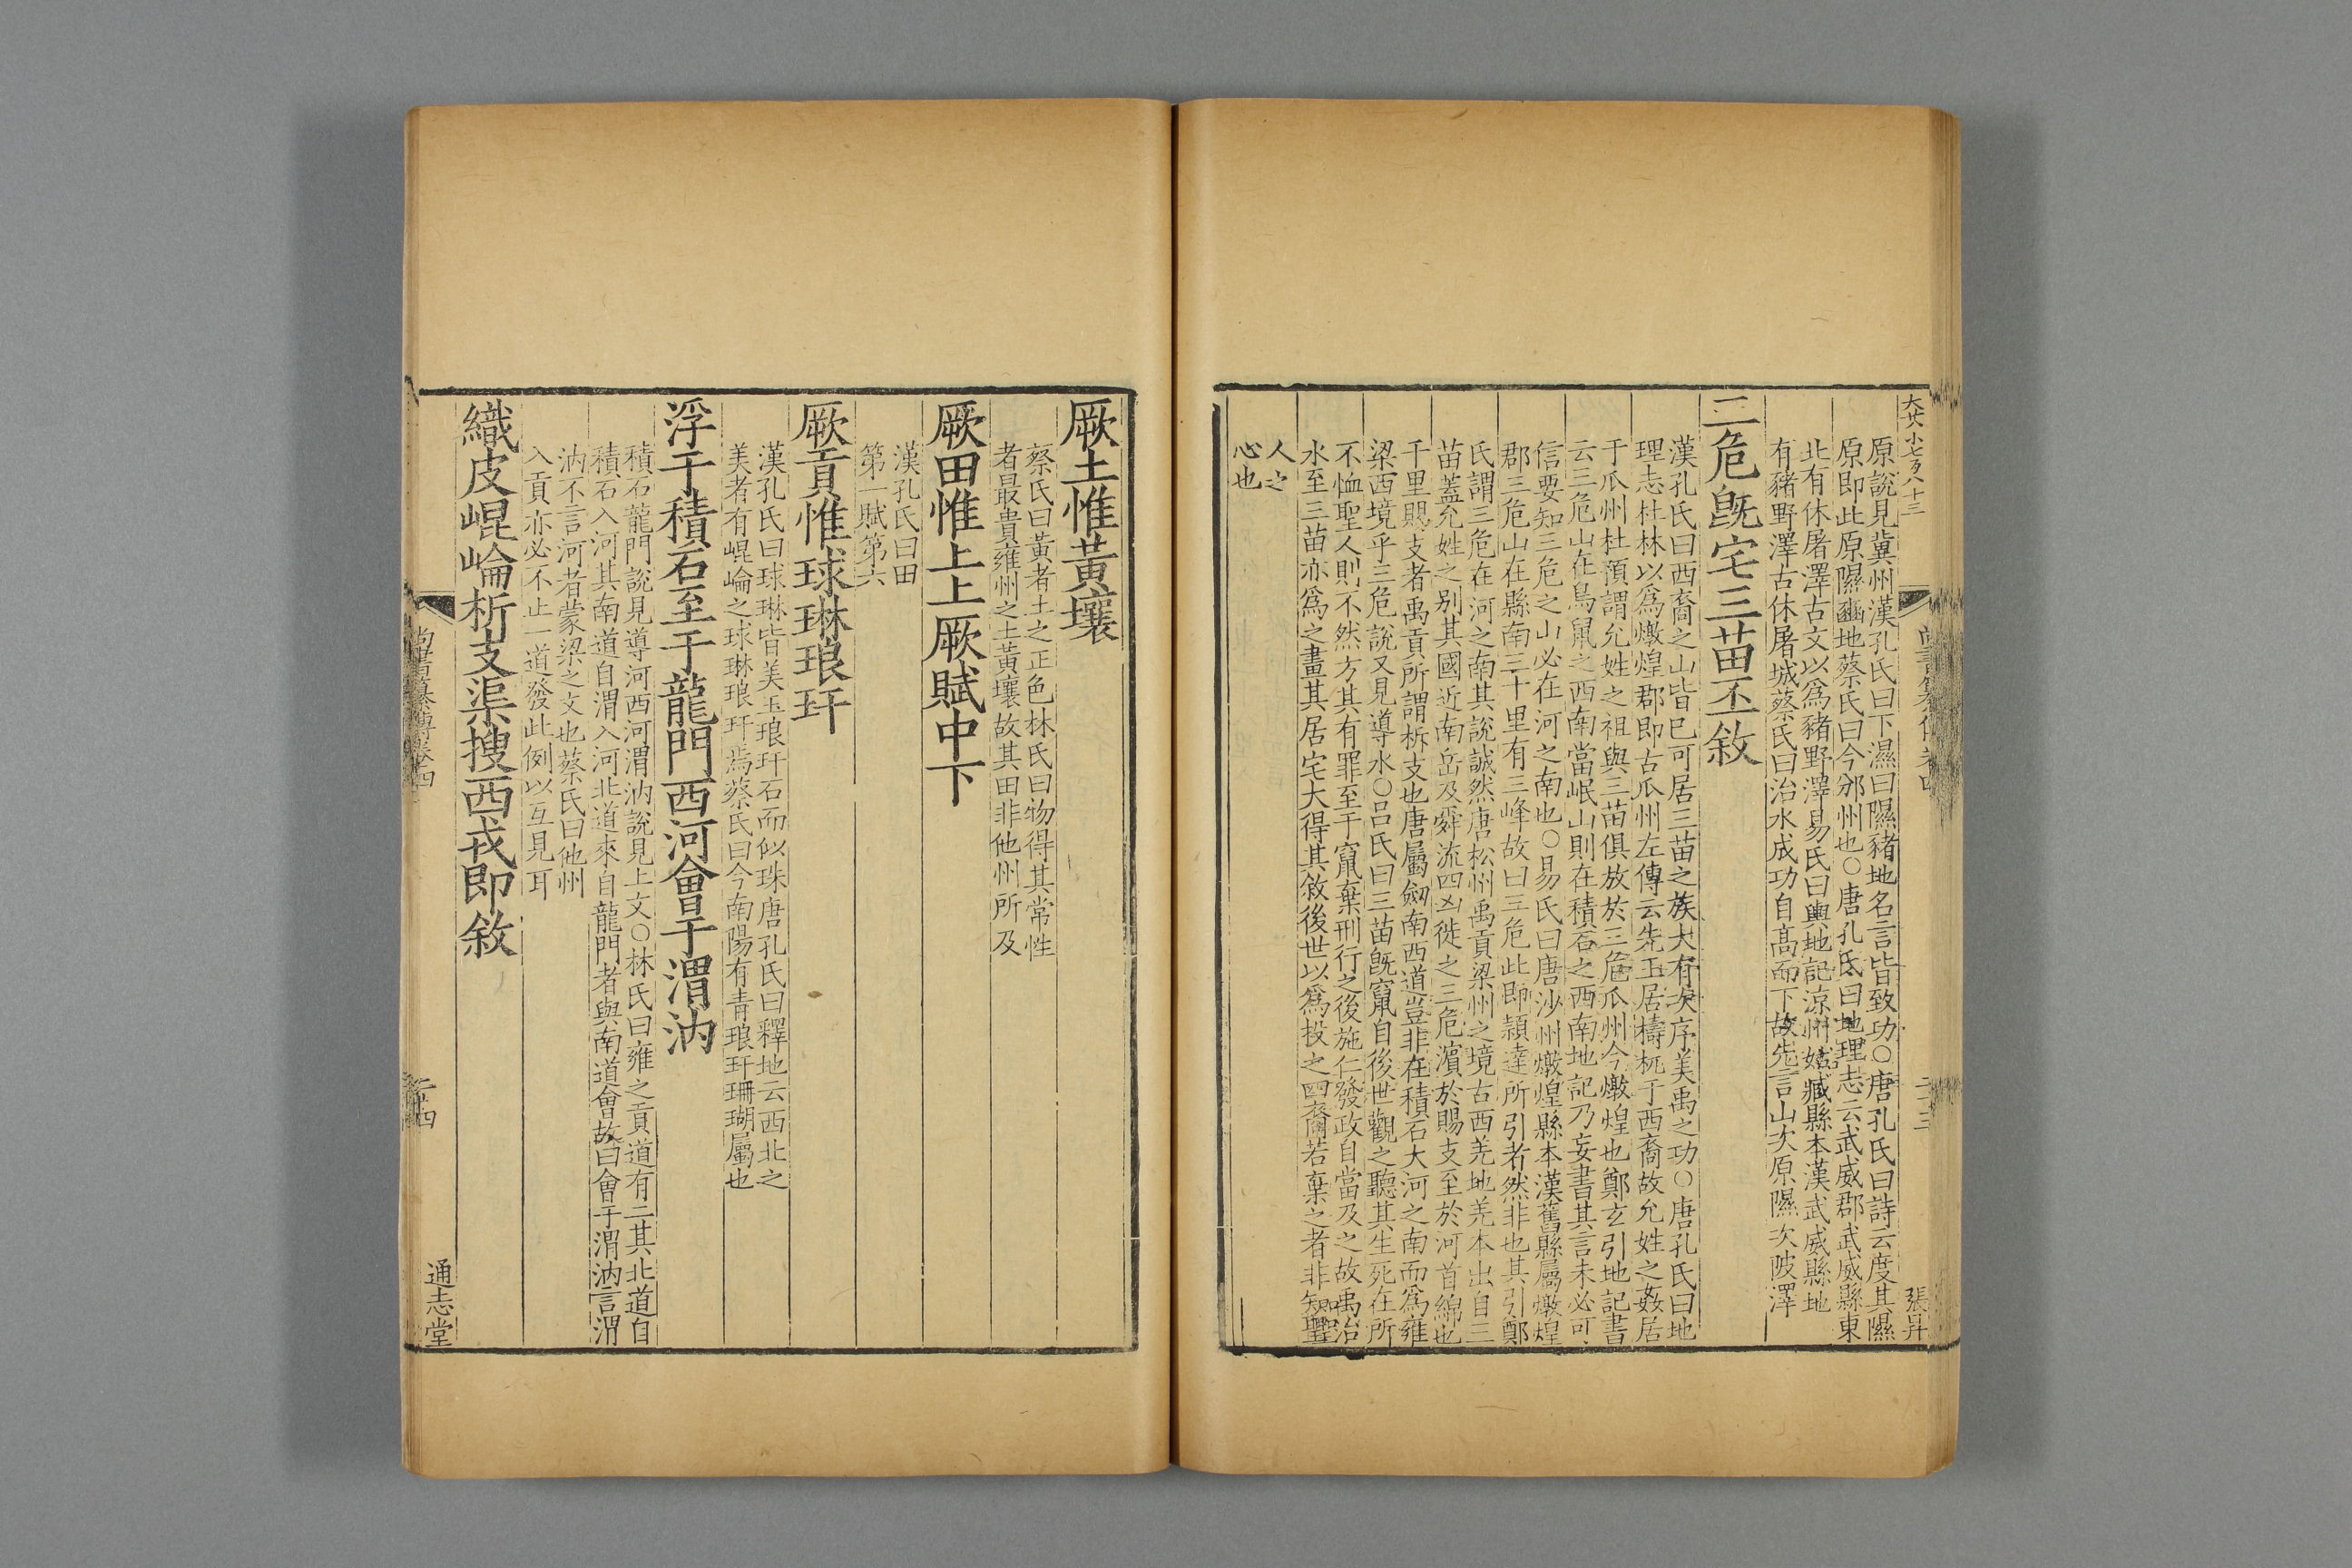 大廿八小七百八十三
原說見冀州漢孔氏曰下濕曰隰豬地名言皆致功○唐孔氏曰詩云度其隰
原即此原隰豳地蔡氏曰今邠州也○唐孔氏曰地理志云武威郡武威縣東
北有休屠澤古文以為豬野澤易氏曰輿地記涼州姑臧縣本漢武威縣地
有豬野澤古休屠城蔡氏曰治水成功自高而下故先言山次原隰次陂澤
三危旣宅三苗丕敘
漢孔氏曰西裔之山皆已可居三苗之族大有次序美禹之功○唐孔氏曰地
理志杜林以為燉煌郡即古瓜州左傳云先王居檮杌于西裔故允姓之姦居
于瓜州杜預謂允姓之祖與三苗俱放於三危瓜州今燉煌也鄭玄引地記書
云三危山在鳥鼠之西南當岷山則在積石之西南地記乃妄書其言未必可
信要知三危之山必在河之南也○易氏曰唐沙州燉煌縣本漢舊縣屬燉煌
郡三危山在縣南三十里有三峰故曰三危此即穎達所引者然非也其引鄭
氏謂三危在河之南其說誠然唐松州禹貢梁州之境古西羌地羌本出自三
苗蓋允姓之別其國近南岳及舜流四凶徙之三危濱於賜支至於河首綿地
千里賜支者禹貢所謂析支也唐屬劒南西道豈非在積石大河之南而為雍
梁西境乎三危說又見導水○呂氏曰三苗旣竄自後世觀之聽其生死在所
不恤聖人則不然方其有罪至于竄棄刑行之後施仁發政自當及之故禹治
水至三苗亦為之畫其居宅大得其敘後世以為投之四裔若棄之者非知聖
人之
心也
尚書纂傳卷四
二十三
張昇
厥土惟黃壤
蔡氏曰黃者土之正色林氏曰物得其常性
者最貴雍州之土黃壤故其田非他州所及
厥田惟上上厥賦中下
漢孔氏曰田
第一賦第六
厥貢惟球琳琅玕
漢孔氏曰球琳皆美玉琅玕石而似珠唐孔氏曰釋地云西北之
美者有崐崘之球琳琅玕焉蔡氏曰今南陽有青琅玕珊瑚屬也
浮于積石至于龍門西河會于渭汭
積石龍門說見導河西河渭汭說見上文○林氏曰雍之貢道有二其北道自
積石入河其南道自渭入河北道來自龍門者與南道會故曰會于渭汭言渭
汭不言河者蒙梁之文也蔡氏曰他州
入貢亦必不止一道發此例以互見耳
織皮崐崘析支渠搜西戎即敘
尚書纂傳卷四
二十四
通志堂